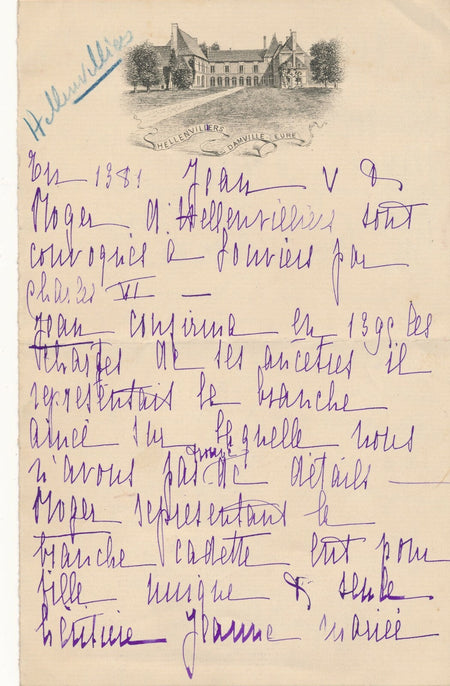 Hellenvilliers
HELLENVILIERS
DAMVILLE EURE
En 1381 Jean V &
Roger d'Hellenvilliers sont
convoqués a Louviers par
Charles VI —
Jean confirma en 139 les
chartes de ses ancêtres il
représentait la branche
ainée sur laquelle nous
n'avons pas de détails —
Roger représentant la
branche cadette eut pour
fille unique & seule
héritière Jeanne mariée